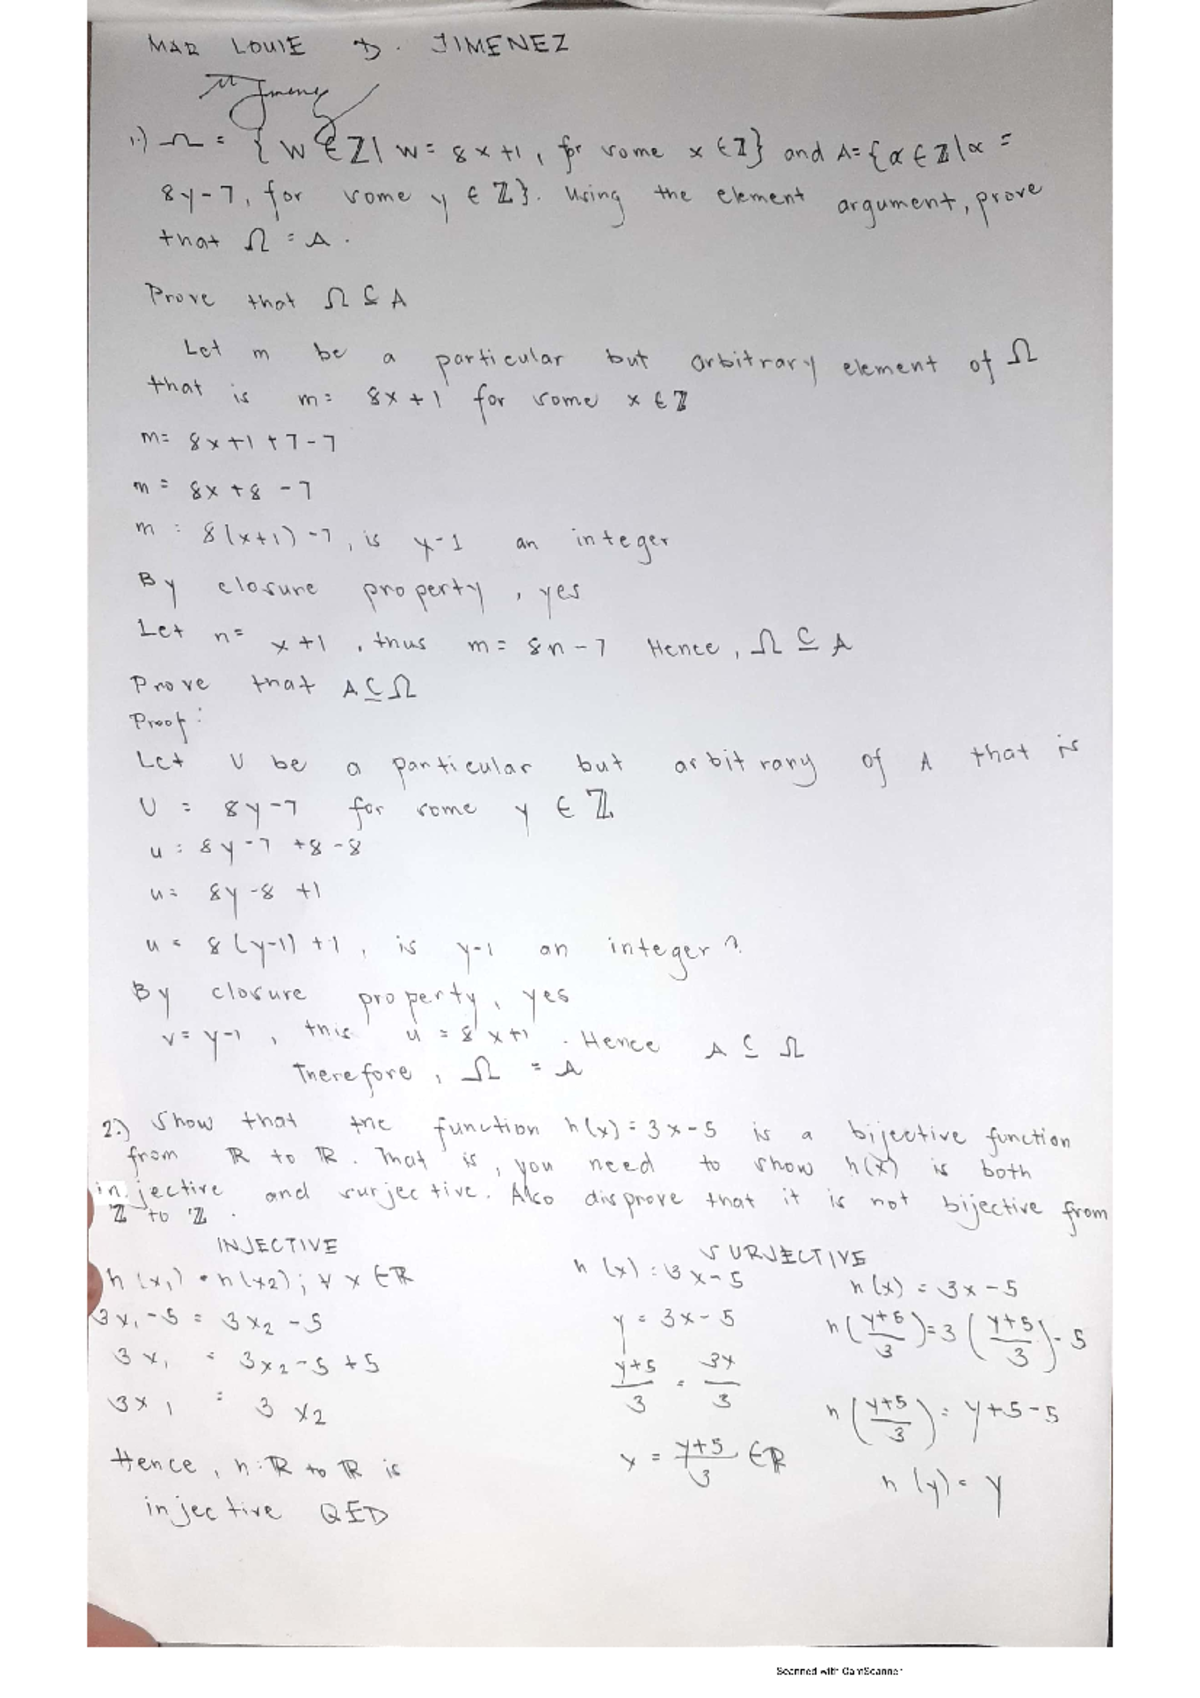 MAR LOUIE D. JIMENEZ
1.) Ω = { W ∈ ℤ | W = 8x+1, for some x ∈ ℤ} and A = {α ∈ ℤ | α =
8y-7, for some y ∈ ℤ}. Using the element argument, prove
that Ω = A.
Prove that Ω ⊆ A
Let m be a particular but arbitrary element of Ω
that is m = 8x+1 for some x ∈ ℤ
m = 8x+1+7-7
m = 8x+8-7
m = 8(x+1)-7, is y-1 an integer
By closure property, yes
Let n = x+1, thus m = 8n-7 Hence, Ω ⊆ A
Prove that A ⊆ Ω
Proof:
Let U be a particular but arbitrary of A that is
U = 8y-7 for some y ∈ ℤ
u = 8y-7+8-8
u = 8y-8+1
u = 8(y-1)+1, is y-1 an integer?
By closure property, yes
v = y-1, this u = 8x+1. Hence A ⊆ Ω
Therefore, Ω = A
2.) Show that the function h(x) = 3x-5 is a bijective function
from ℝ to ℝ. That is, you need to show h(x) is both
injective and surjective. Also disprove that it is not bijective from
ℤ to ℤ.
INJECTIVE
h(x₁) = h(x2); ∀ x ∈ ℝ
3x₁-5 = 3x₂-5
3x₁ = 3x₂-5+5
3x₁ = 3x₂
Hence, h:ℝ to ℝ is
injective QED
SURJECTIVE
h(x) = 3x-5
y = 3x-5
y+5/3 = 3x/3
x = y+5/3 ∈ ℝ
h(x) = 3x-5
h(y+5/3) = 3(y+5/3)-5
h(y+5/3) = y+5-5
h(y) = y
Scanned with CamScanner